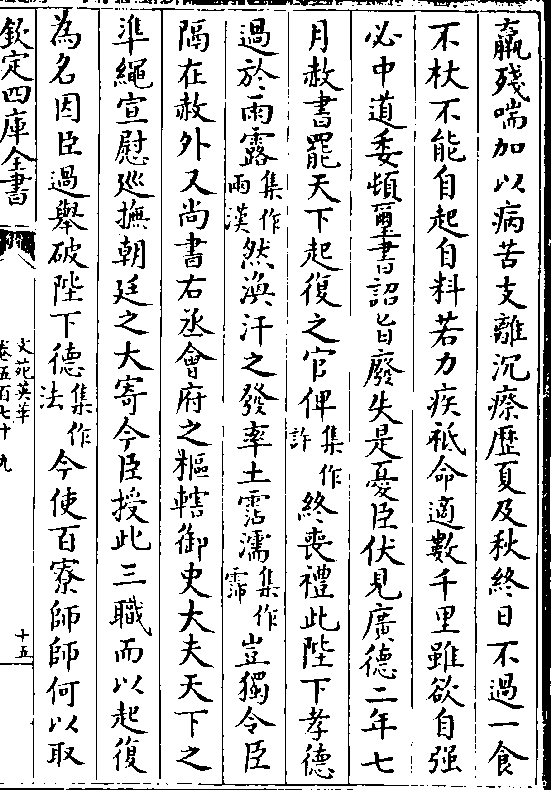 羸殘喘加以病苦支離沉瘵歴夏及秋終日不過一食
不杖不能自起自料若力疾祗命適數千里雖欲自强
必中道委頓璽書詔旨廢失是憂臣伏見廣德二年七
月赦書罷天下起復之官俾集作許終喪禮此陛下孝德
過於雨露集作雨漢然渙汗之發率土霑濡集作霈豈獨令臣
隔在赦外又尚書右丞會府之樞轄御史大夫天下之
準繩宣慰廵撫朝廷之大寄今臣授此三職而以起復
為名因臣過舉破陛下德集作法今使百寮師師何以取
欽定四庫全書
文苑英華
卷五百七十九
十五